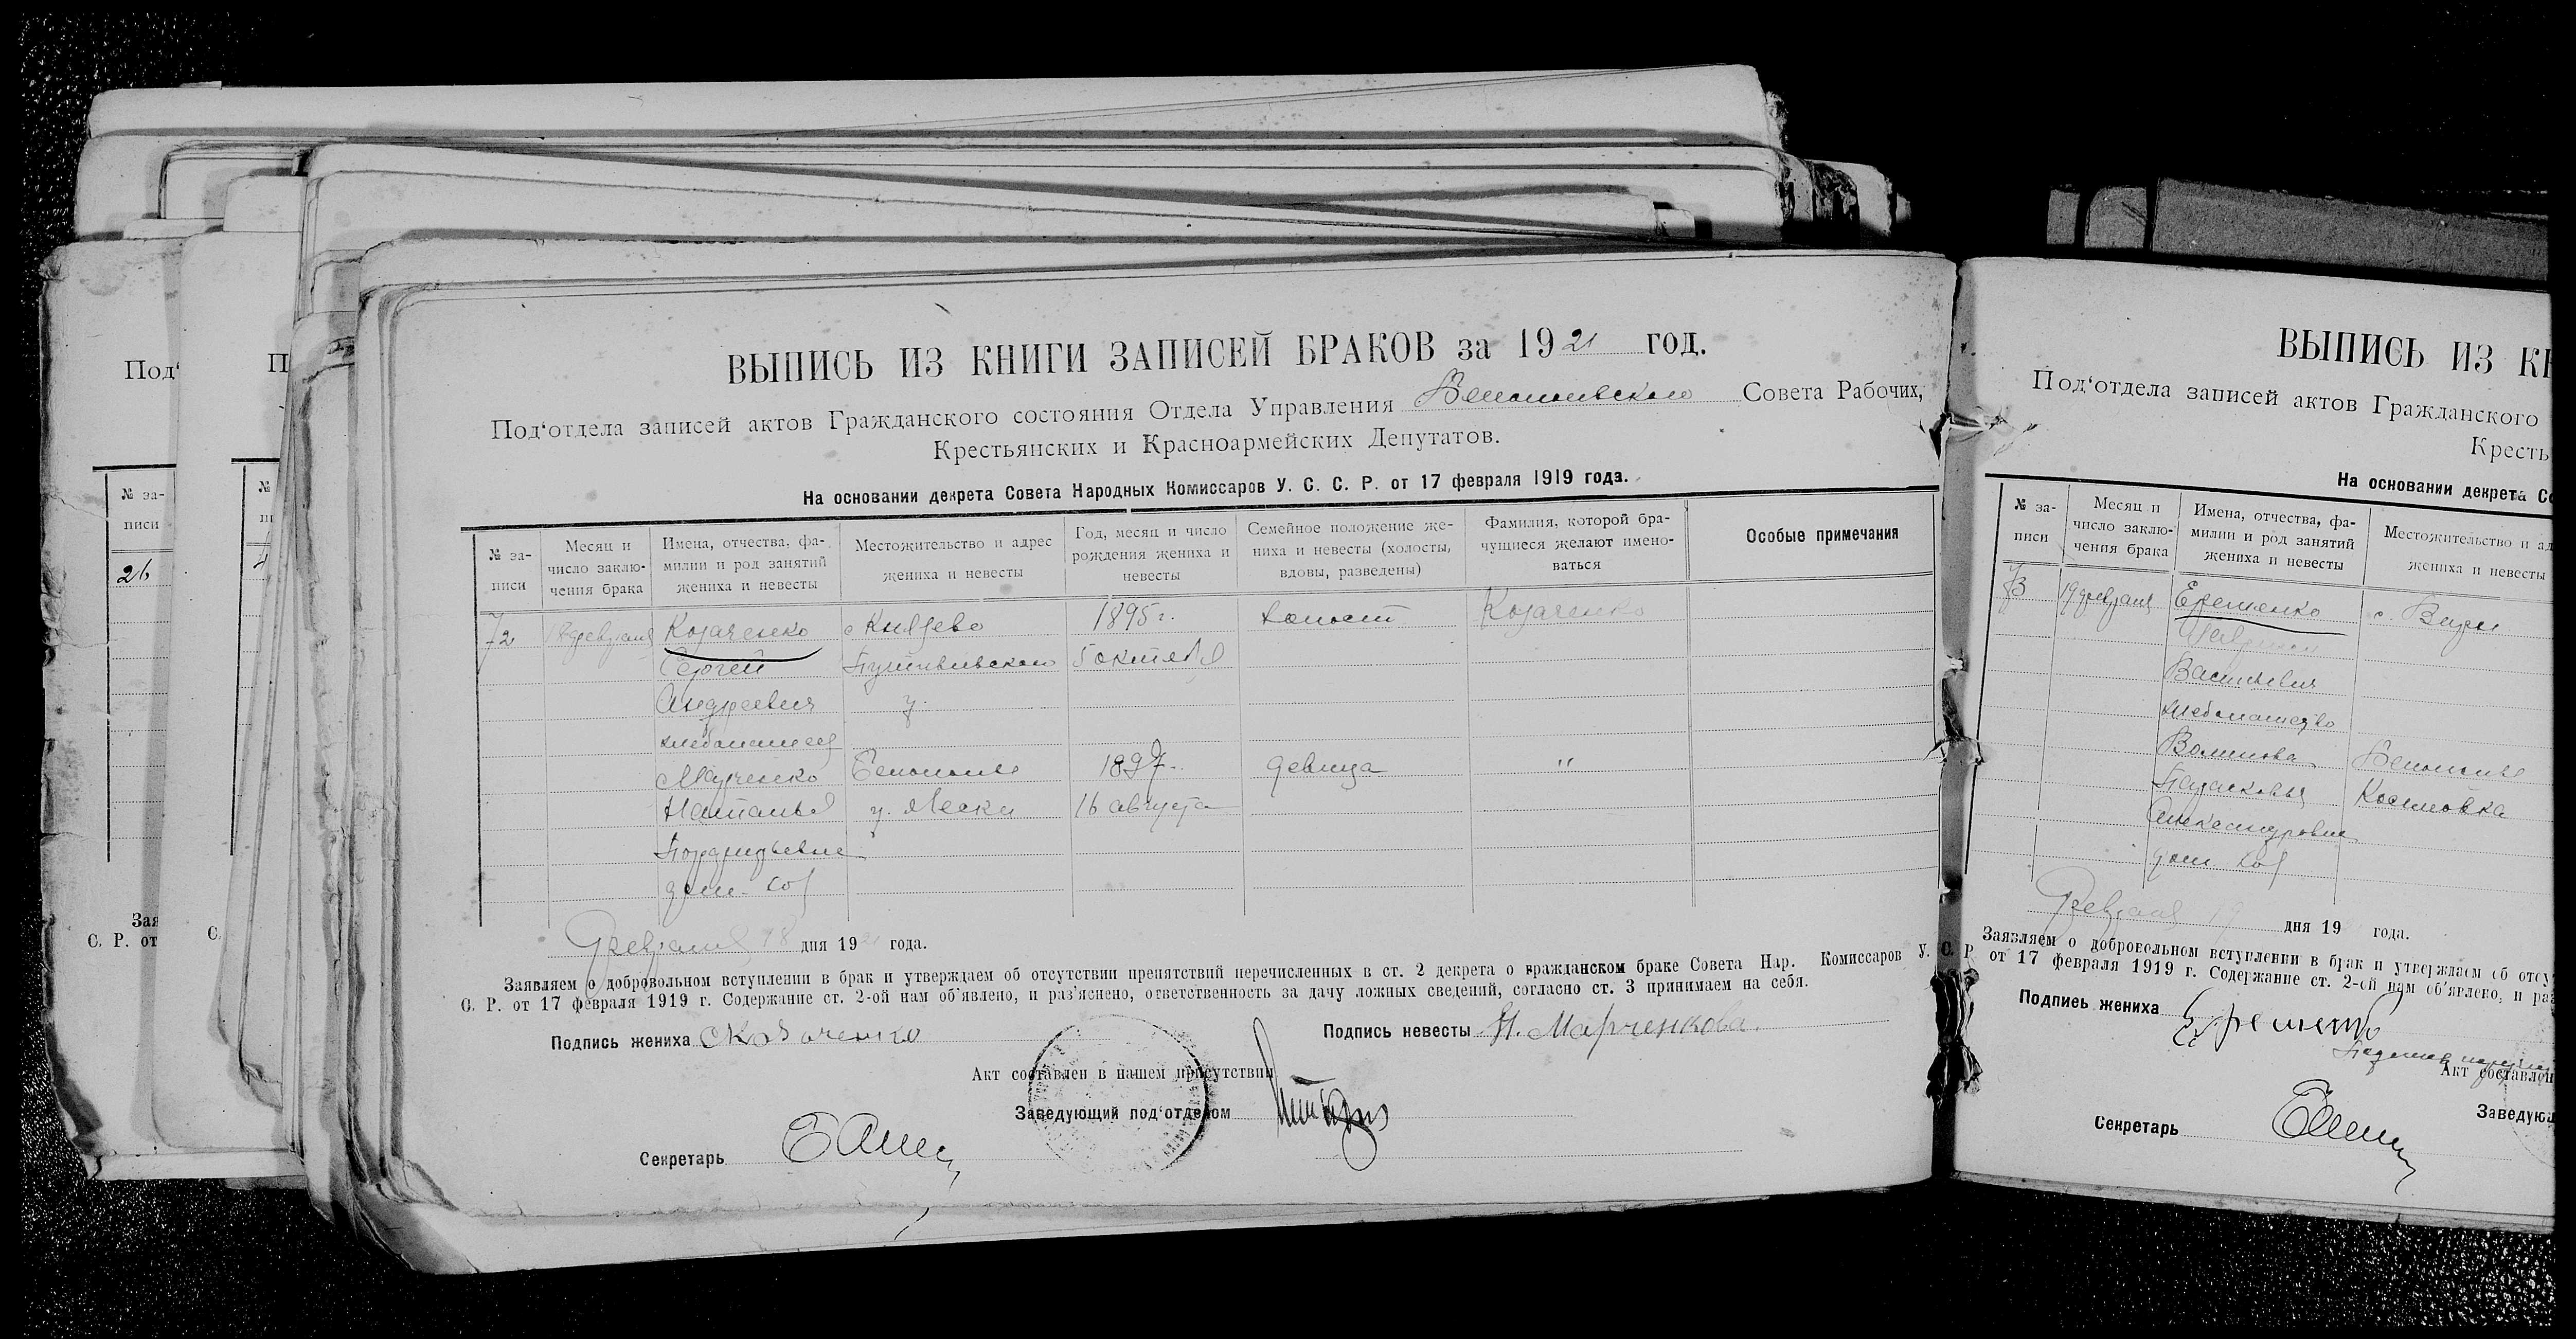 ВЫПИСЬ ИЗ КНИГИ ЗАПИСЕЙ БРАКОВ за 1921 год.
Под‘отдела записей актов Гражданского состояния Отдела Управления Совета Рабочих,
Крестьянских и Красноармейских Депутатов.
На основании декрета Совета Народных Комиссаров У. С. С. Р. от 17 февраля 1919 года.
№ за-
писи
Месяц и
число заклю-
чения брака
Имена, отчества, фа-
милии и род занятий
жениха и невесты
Местожительство и адрес
жениха и невесты
Год, месяц и число
рождения жениха и
невесты
Семейное положение же-
ниха и невесты (холосты,
вдовы, разведены)
Фамилия, которой бра-
чущиеся желают имено-
ваться
Особые примечания
72 18 февраля Козаченко с Князево 1895 г. холост Козаченко
Сергей Путивльского 5 октября
Андреевич у.
хлебопашец
Марченко Белополье 1897 девица "
Наталья у. Пески 16 августа
дом. хоз
Февраля 18 дня 1921 года.
Заявляем о добровольном вступлении в брак и утверждаем об отсутствии препятствий перечисленных в ст. 2 декрета о гражданском браке Совета Нар. Комиссаров У. С.
С. Р. от 17 февраля 1919 г. Содержание ст. 2-ой нам об‘явлено, и раз‘яснено, ответственность за дачу ложных сведений, согласно ст. 3 принимаем на себя.
Подпись жениха С Козаченко
Подпись невесты Н. Марченкова.
Акт составлен в нашем присутствии
Заведующий под‘отделом
Секретарь
ВЫПИСЬ ИЗ КН
Под‘отдела записей актов Гражданского
Кресть
На основании декрета Со
№ за-
писи
Месяц и
число заклю-
чения брака
Имена, отчества, фа-
милии и род занятий
жениха и невесты
Местожительство и ад
жениха и невесты
73 19 февраля Еременко с. Виры
Васильевич
хлебопашество
Волкова Белополье
Парасковья
Александровна
дом. хоз
Февраля 19 дня 19 года.
Заявляем о добровольном вступлении в брак и утверждаем об отсу
Р от 17 февраля 1919 г. Содержание ст. 2-ой нам об‘явлено, и раз
Подпись жениха Еременко
Акт составлен
Заведующ
Секретарь
Под‘
№ за-
писи
26
Зая
С. Р. от
П
№
С.